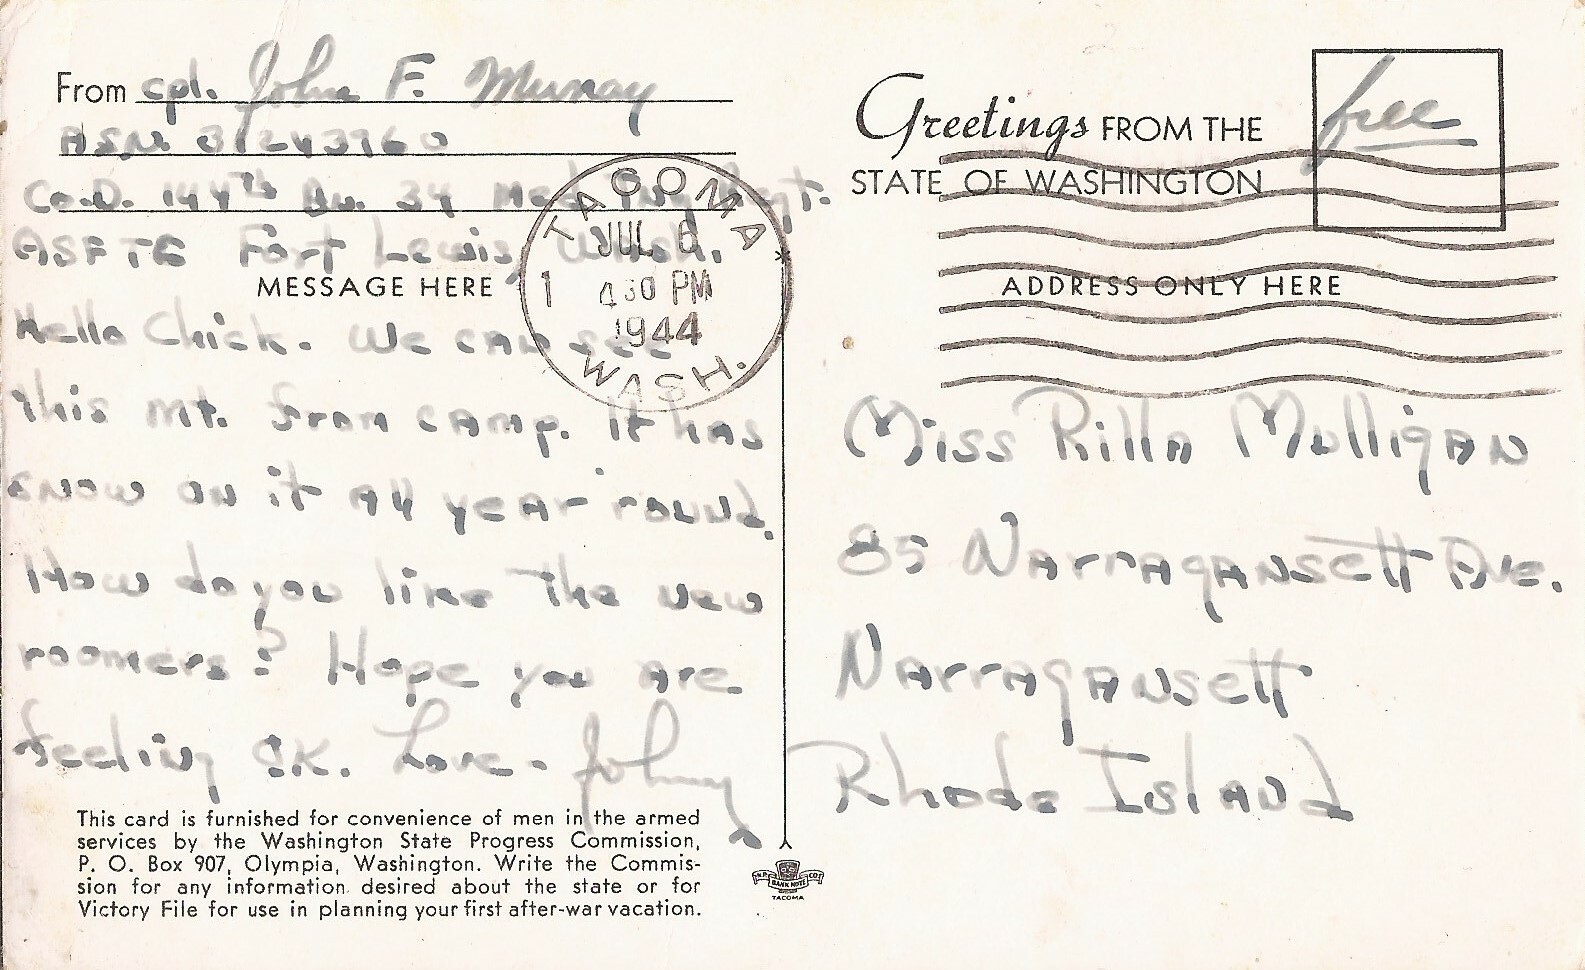 From cpl. John F. Murray
ASN. 31243960
Co.D. 144th Bn. 34 Med Tng Rgt.
ASFTC Fort Lewis, Wash.
MESSAGE HERE
Hello Chick. We can see
this mt. from camp. It has
snow on it all year 'round.
How do you like the new
roomers? Hope you are
feeling OK. Love - Johny
This card is furnished for convenience of men in the armed
services by the Washington State Progress Commission,
P. O. Box 907, Olympia, Washington. Write the Commis-
sion for any information desired about the state or for
Victory File for use in planning your first after-war vacation.
TACOMA
JUL 6
1 430 PM
1944
WASH.
Greetings FROM THE
STATE OF WASHINGTON
free
ADDRESS ONLY HERE
Miss Rilla Mulligan
85 Narragansett Ave.
Narragansett
Rhode Island
BANK NOTE
TACOMA